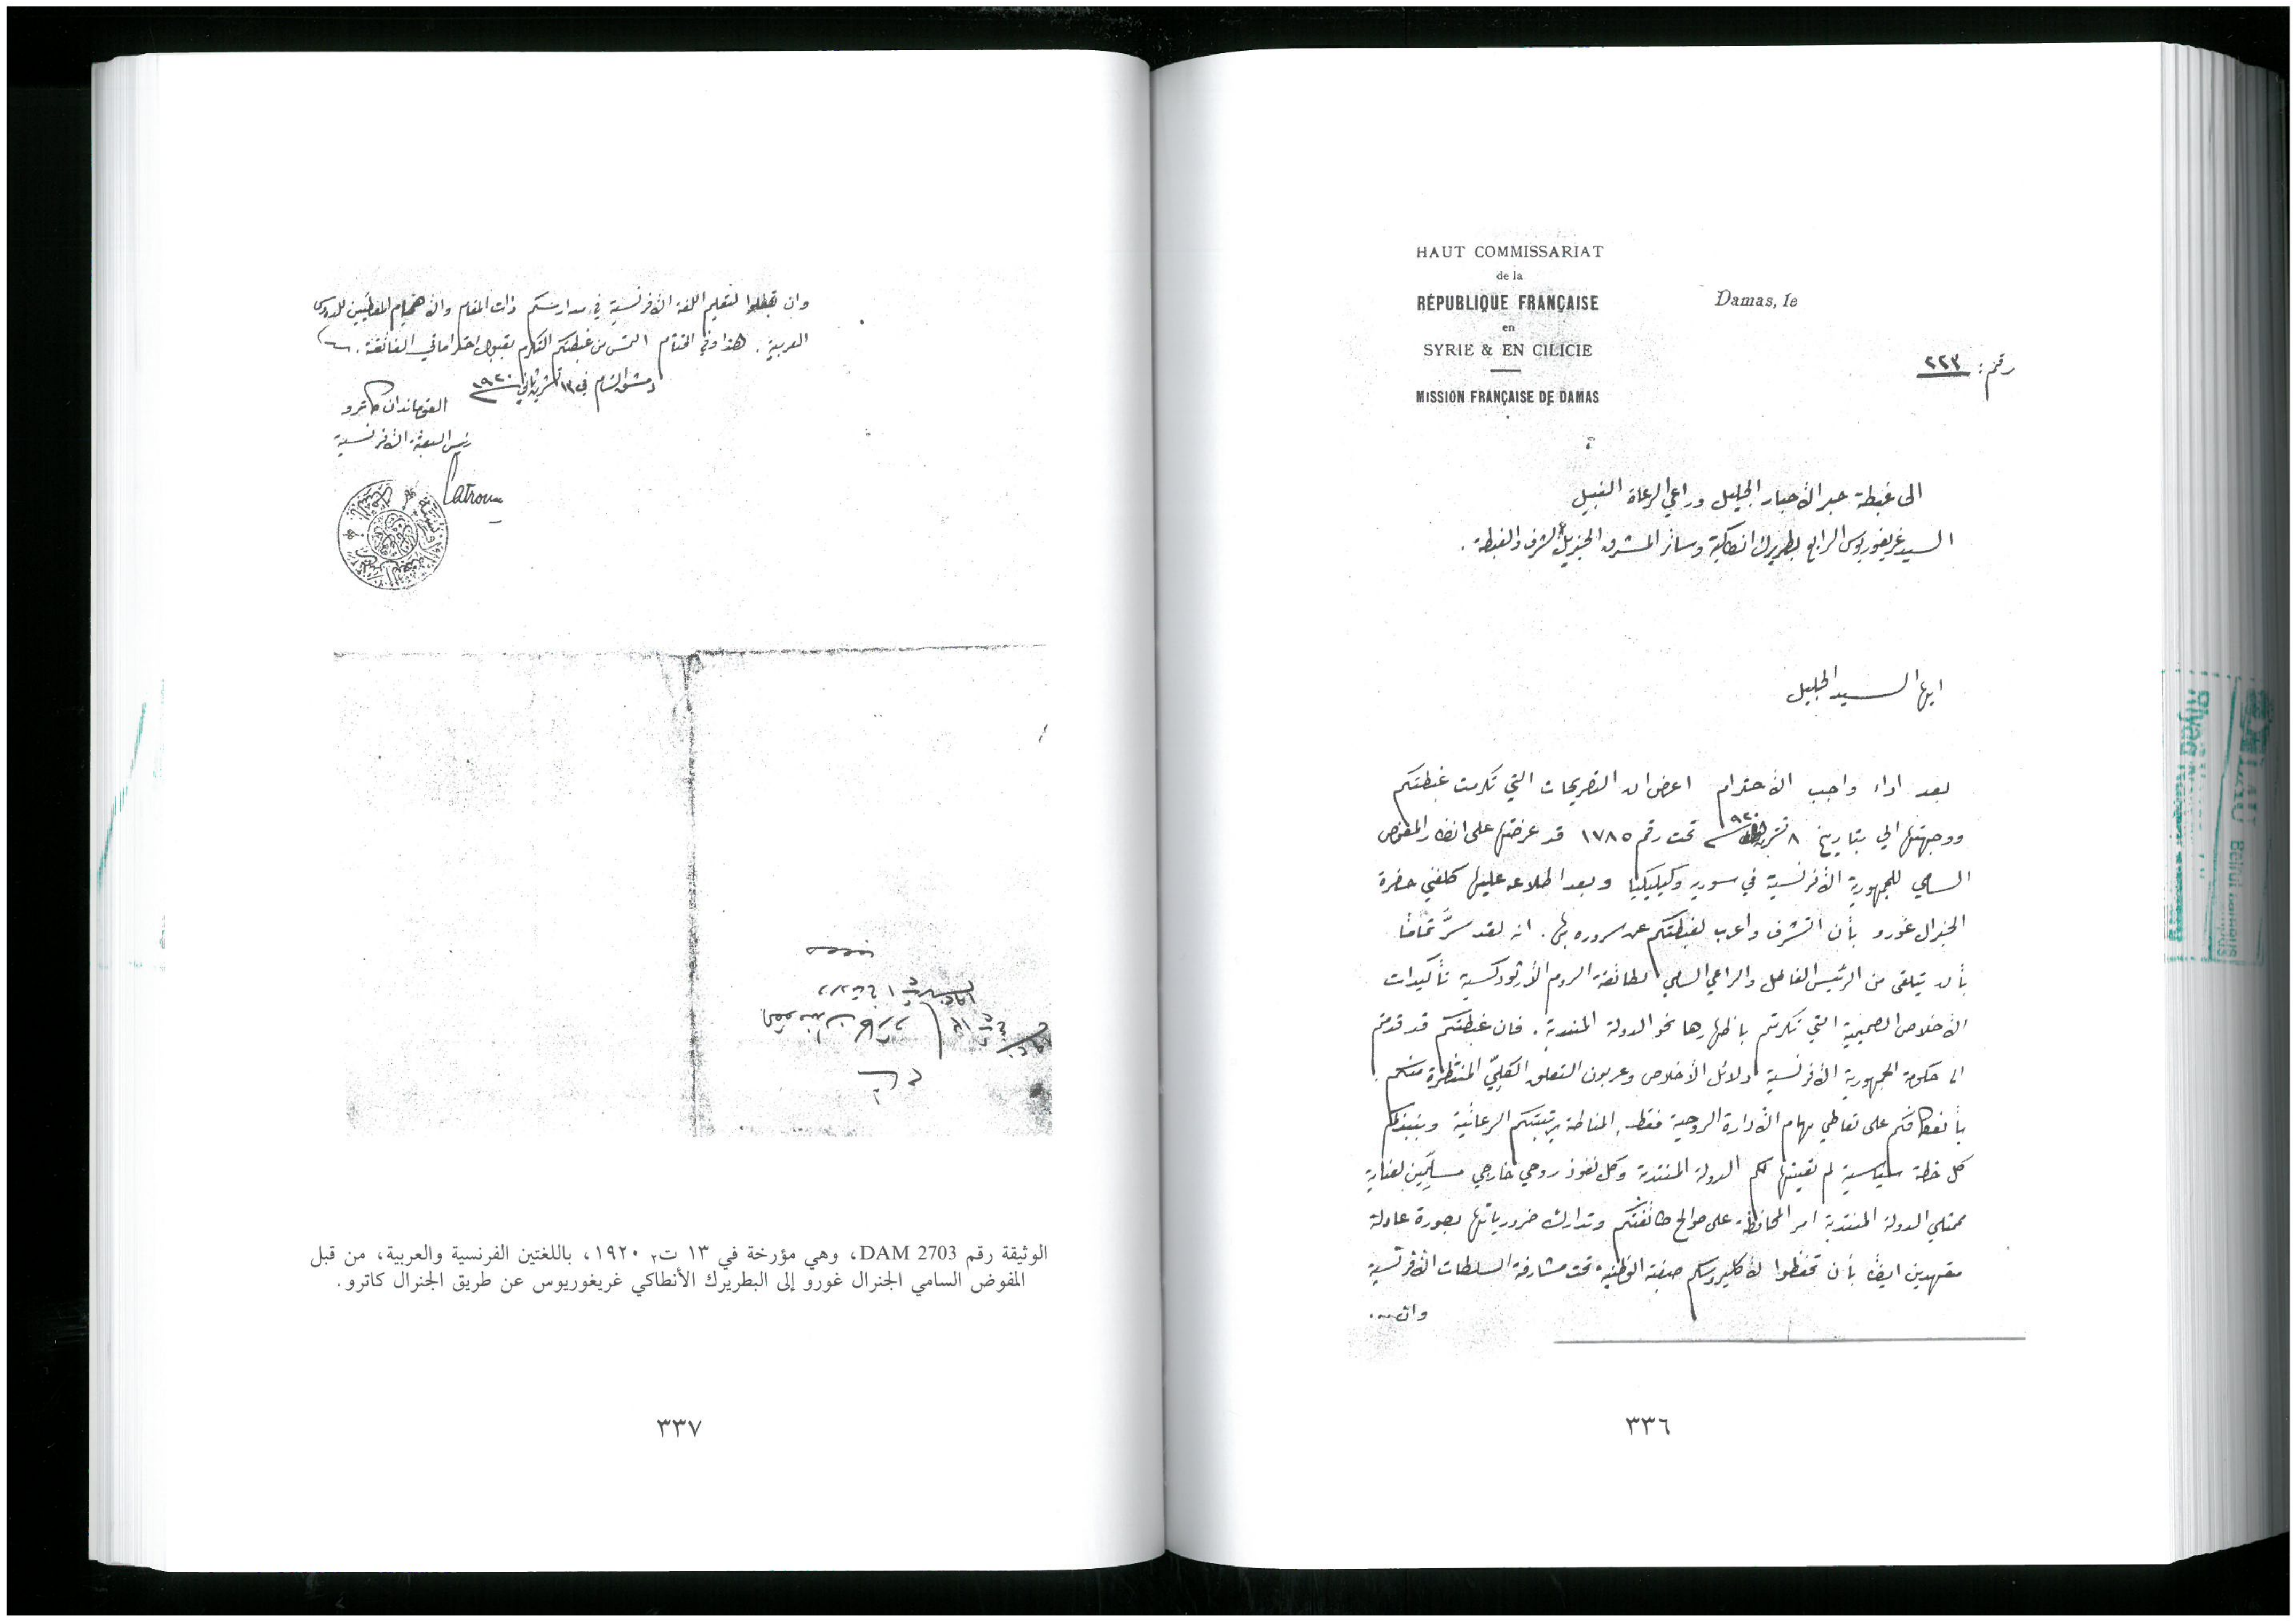 HAUT COMMISSARIAT
de la
RÉPUBLIQUE FRANÇAISE
en
SYRIE & EN CILICIE
MISSION FRANÇAISE DE DAMAS
Damas, le
رقم: ٢٢٣
الى غبطة حبر الأحبار الجليل وراعي الرعاة النبيل
السيد غريغوريوس الرابع بطريرك انطاكية وسائر المشرق الجزيل الشرف والغبطة.
ايها السيد الجليل
بعد اداء واجب الأحترام اعرض ان التصريحات التي تكرمت غبطتكم
ووجهتها الي بتاريخ ٨ تشرين ٩٢٠ تحت رقم ١٧٨٥ قد عرضتها على انظار المفوض
السامي للجمهورية الأفرنسية في سوريا وكيليكيا وبعد اطلاعه عليها كلفني حضرة
الجنرال غورو بأن اتشرف واعرب لغبطتكم عن سروره بها. انه لقد سرَّ تمامًا
بأن يتلقى من الرئيس الفاضل والراعي السامي لطائفة الروم الأرثودكسية تأكيدات
الأخلاص الصميمية التي تكرمتم باظهارها نحو الدولة المنتدبة. فان غبطتكم قد قدمتم
الى حكومة الجمهورية الأفرنسية دلائل الأخلاص وعربون التعلق الكليّ المنتظرة منكم
بأنعكافكم على تعاطي مهام الأدارة الروحية فقط المناطة برتبتكم الرعائية وبنبذكم
كل خطة سياسية لم تعينها لكم الدولة المنتدبة وكل نفوذ روحي خارجي مسلِّمين لعناية
ممثلي الدولة المنتدبة امر المحافظة على صوالح طائفتكم وتدارك ضرورياتها بصورة عادلة
متعهدين ايضًا بأن تحفظوا لأكليروسكم صبغته الوطنية تحت مشارفة السلطات الأفرنسية
وان...
٣٣٦
وان تجعلوا لتعليم اللغة الأفرنسية في مدارسكم ذات المقام والأهتمام المعطيين للدروس
العربية. هذا وفي الختام التمس من غبطتكم التكرم بقبول احتراماتي الفائقة.
دمشق الشام في ١٣ تشرين ثاني ١٩٢٠
القومندان كاترو
رئيس البعثة الأفرنسية
Catroux
الوثيقة رقم DAM 2703، وهي مؤرخة في ١٣ ت٢ ١٩٢٠، باللغتين الفرنسية والعربية، من قبل
المفوض السامي الجنرال غورو إلى البطريرك الأنطاكي غريغوريوس عن طريق الجنرال كاترو.
٣٣٧